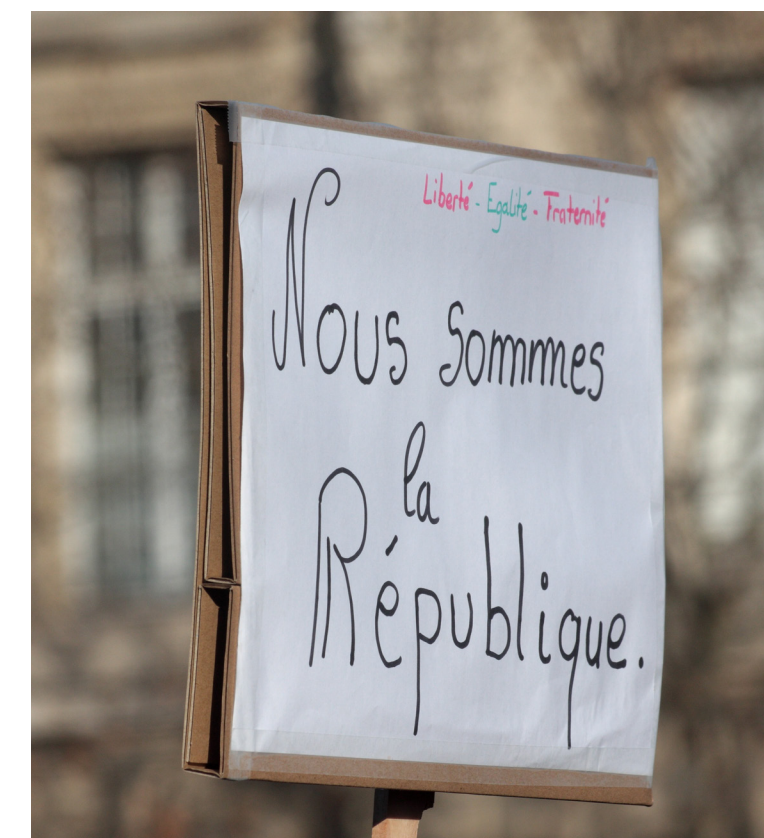 Liberté - Egalité - Fraternité
Nous sommes
la
République.